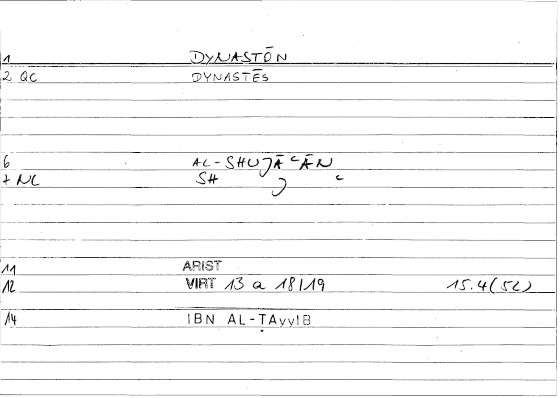 1 DYNASTŌN
2 QC DYNASTĒS
6 AL-SHUJĀʿĀN
+ NC SH J ʿ
11 ARIST
12 VIRT 13 a 18/19 15.4(5L)
14 IBN AL-ṬAyyIB